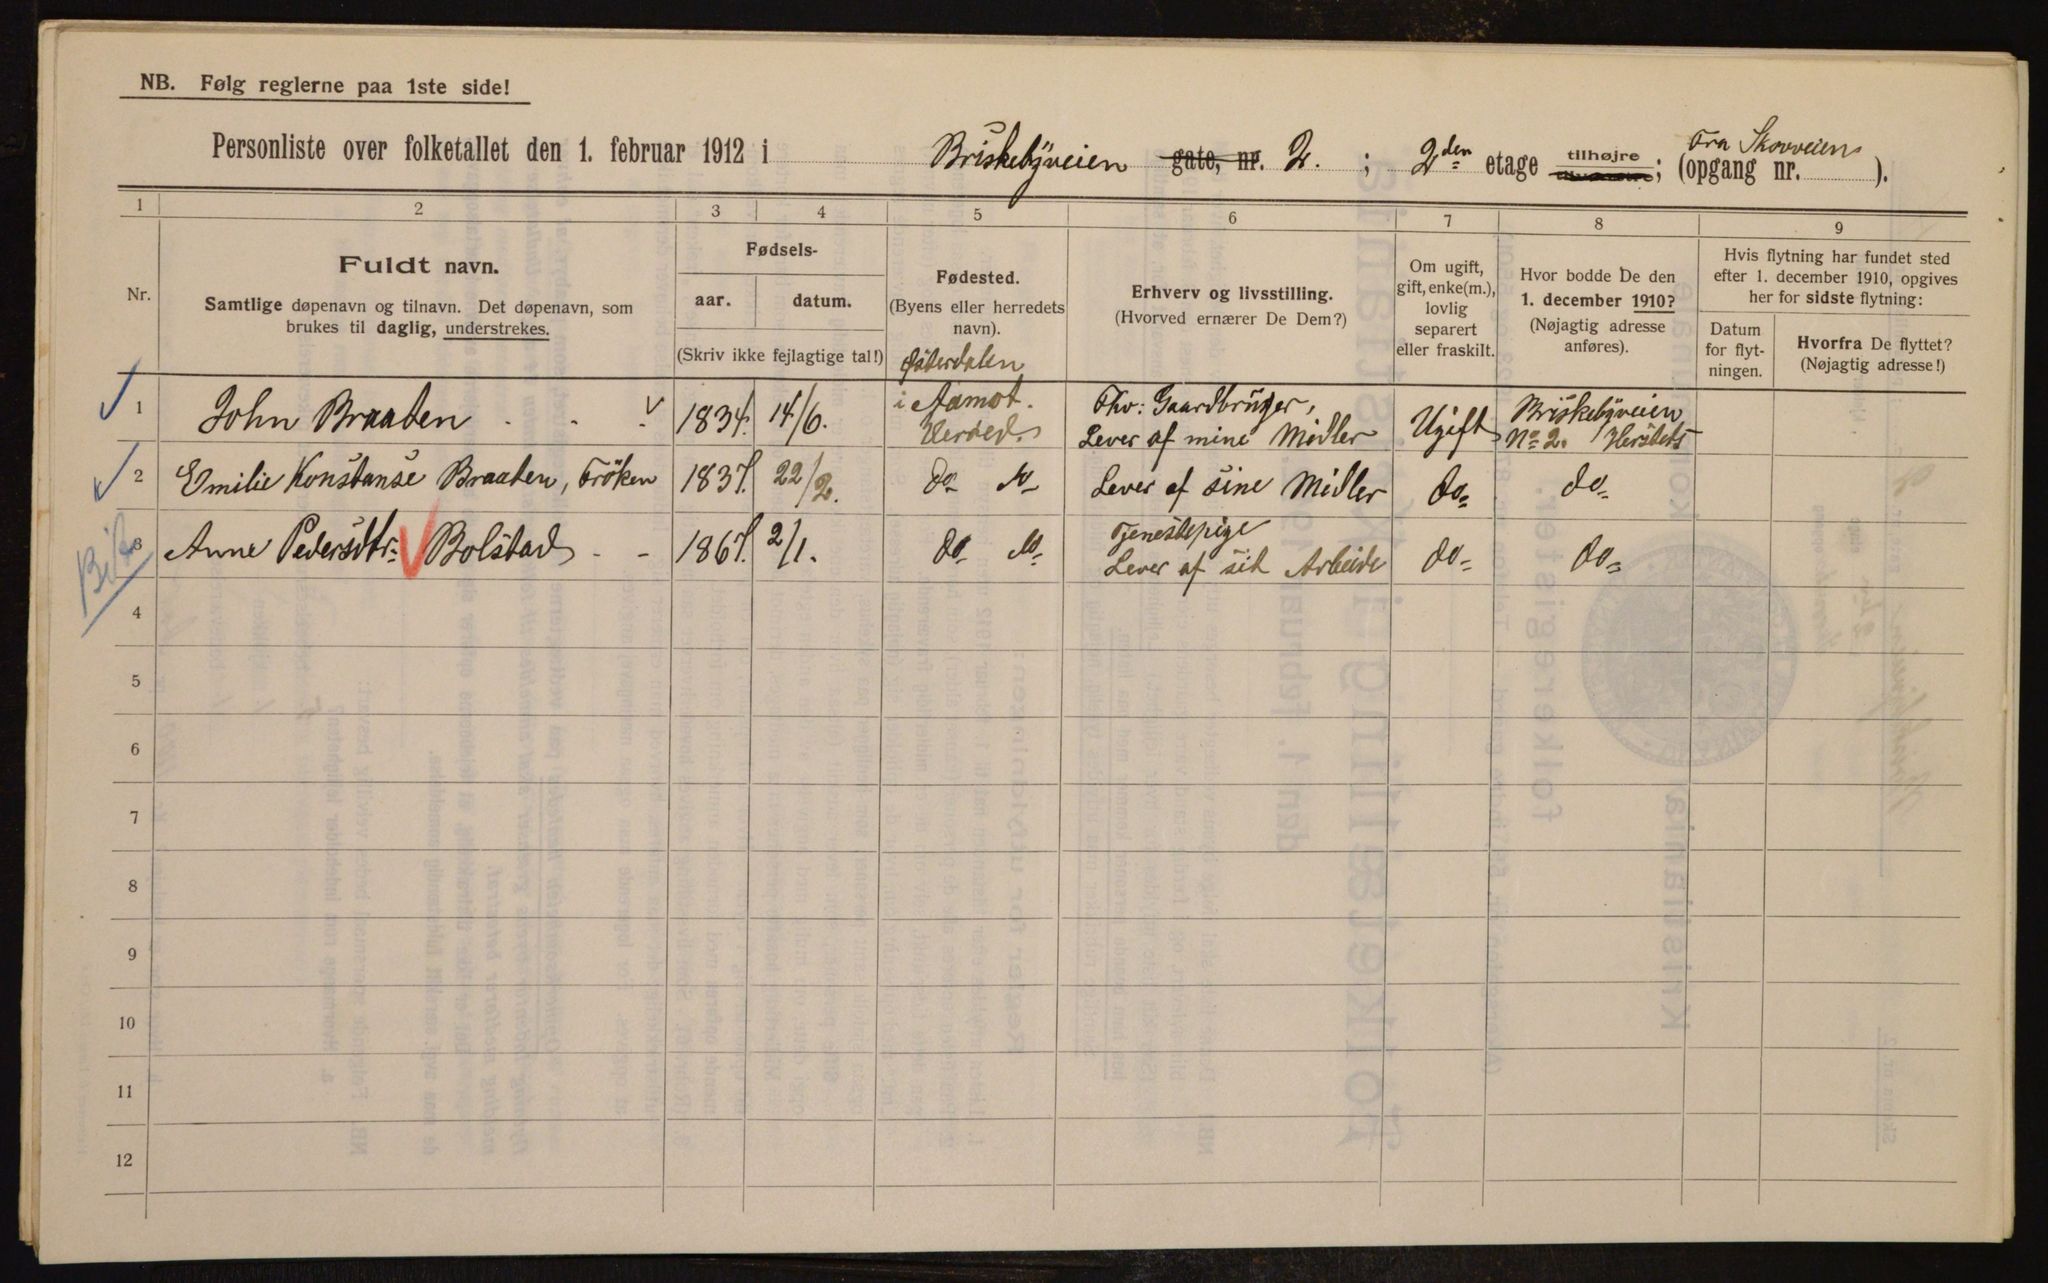 NB. Følg reglerne paa 1ste side!
Personliste over folketallet den 1. februar 1912 i Briskebyveien gate, nr. 2. ; 2den etage tilhøjre tilvenstre; (opgang nr. Fra Skovveien ).
1 2 3 4 5 6 7 8 9
Nr.
Fuldt navn.
Samtlige døpenavn og tilnavn. Det døpenavn, som
brukes til daglig, understrekes.
Fødsels-
aar. datum.
(Skriv ikke fejlagtige tal!)
Fødested.
(Byens eller herredets
navn).
Erhverv og livsstilling.
(Hvorved ernærer De Dem?)
Om ugift,
gift, enke(m.),
lovlig
separert
eller fraskilt.
Hvor bodde De den
1. december 1910?
(Nøjagtig adresse
anføres).
Hvis flytning har fundet sted
efter 1. december 1910, opgives
her for sidste flytning:
Datum
for flyt-
ningen.
Hvorfra De flyttet?
(Nøjagtig adresse!)
Østerdalen
1 John Braaten 1834. 14/6. i Aamot. Fhv: Gaardbruger, Ugift Briskebyveien
Lever af mine Midler No 2.
2 Emilie Konstanse Braaten, Fröken 1837. 22/2. do do Lever af sine Midler do do
3 Anne Pedersdtr: Bolstad 1867. 2/1. do do Tjenestepige do do
Lever af sit Arbeide
4
5
6
7
8
9
10
11
12